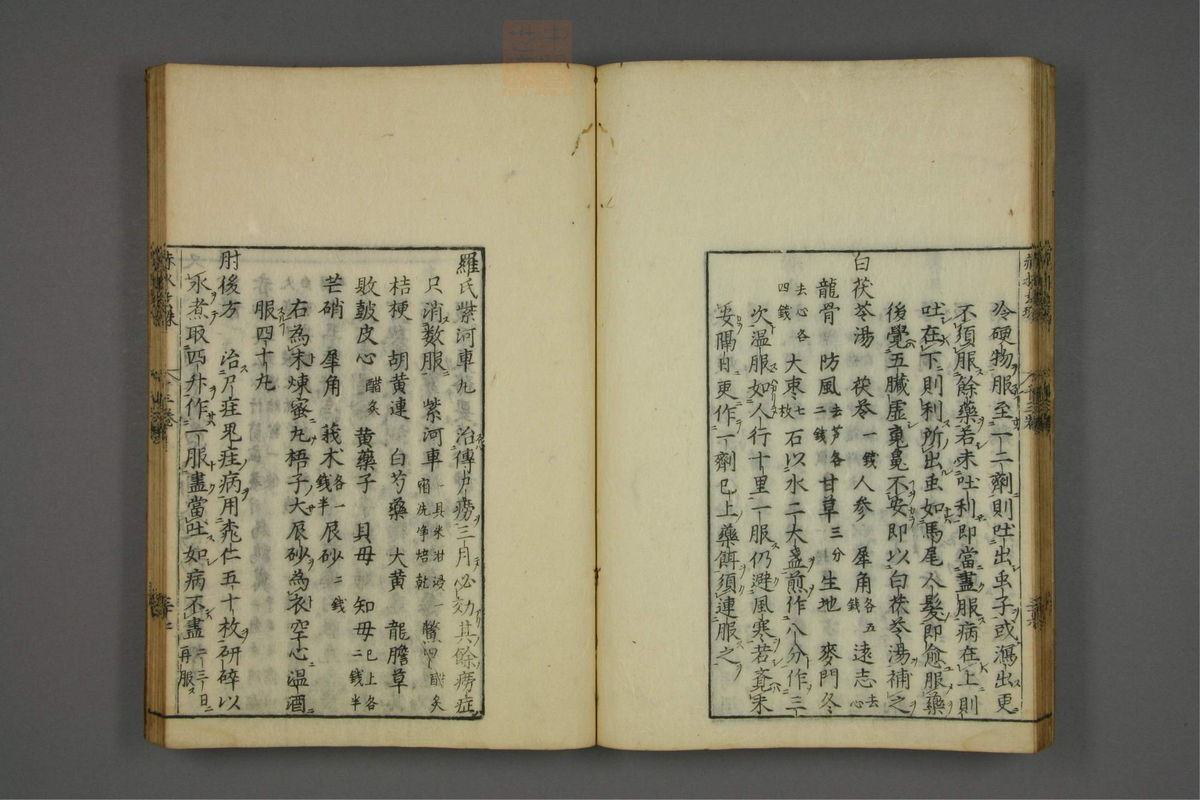 冷硬物服至一二劑則吐出虫子或瀉出更
不須服餘藥若未吐利即當盡服病在上則
吐在下則利所出虫如馬尾人髮即愈服藥
後覺五臟虛
不安即以白茯苓湯補之
白茯苓湯 茯苓一錢 人參 犀角各五錢 遠志去心
龍骨 防風去芦各二錢 甘草三分 生地 麥門冬
去心各四錢 大枣七枚 石以水二大盞煎作八分作三
次溫服如人行十里一服仍避風寒若竟未
妥隔日更作一劑已上藥餌須連服之
羅氏紫河車丸 治傳尸癆三月必効其餘癆症
只消数服 紫河車一具米泔浸一
宿洗净焙乾 鱉甲醋炙
桔梗 胡黄連 白芍藥 大黄 龍膽草
敗皷皮心醋炙 黄藥子 貝母 知母已上各二錢半
芒硝 犀角 莪术各一錢半 辰砂二錢
右為末煉蜜丸梧子大辰砂為衣空心温酒
服四十丸
肘後方 治尸疰鬼疰病用桃仁五十枚研碎以
水煮取四升作一服盡當吐如病不盡二三日再服